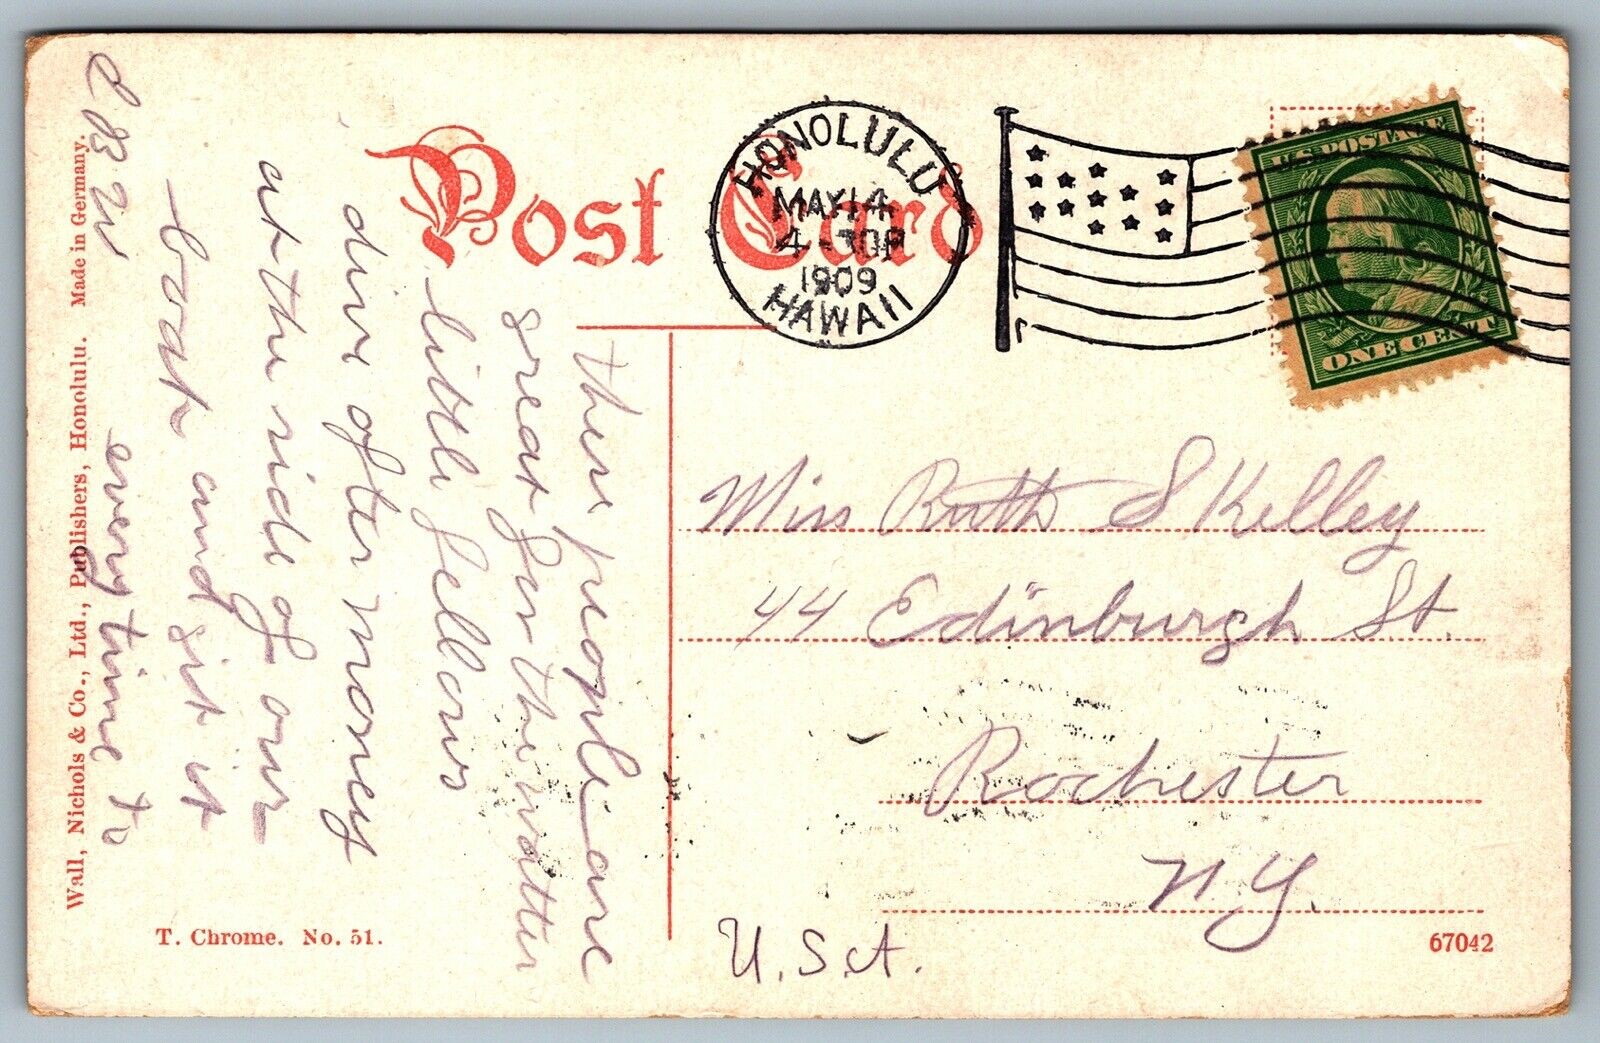 Post Card
HONOLULU
MAY 14
4-30P
1909
HAWAII
U.S. POSTAGE
ONE CENT
these people are
great for the watter
little fellows
dive after money
at the side of our
boat and git it
every time to
Miss Ruth Skelley
44 Edinburgh St.
Rochester
N.Y.
U.S.A.
Wall, Nichols & Co., Ltd., Publishers, Honolulu. Made in Germany.
T. Chrome. No. 51.
67042